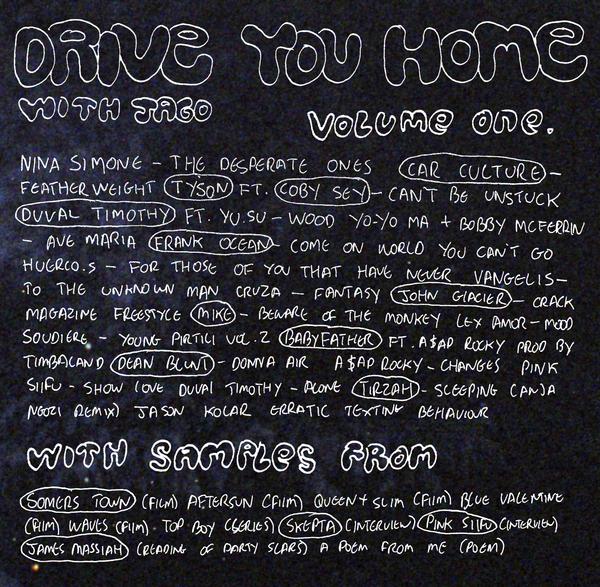 DRIVE YOU HOME
WITH JAGO
VOLUME ONE.
NINA SIMONE - THE DESPERATE ONES CAR CULTURE -
FEATHERWEIGHT TYSON FT. COBY SEY - CAN'T BE UNSTUCK
DUVAL TIMOTHY FT. YU.SU - WOOD YO-YO MA + BOBBY MCFERRIN
- AVE MARIA FRANK OCEAN - COME ON WORLD YOU CAN'T GO
HUERCO.S - FOR THOSE OF YOU THAT HAVE NEVER VANGELIS -
TO THE UNKNOWN MAN CRUZA - FANTASY JOHN GLACIER - CRACK
MAGAZINE FREESTYLE MIKE - BEWARE OF THE MONKEY LEX AMOR - MOOD
SOUDIERE - YOUNG PIRTICI VOL. 2 BABYFATHER FT. A$AP ROCKY PROD BY
TIMBALAND DEAN BLUNT - DOWNA AIR A$AP ROCKY - CHANGES PINK
SIIFU - SHOW LOVE DUVAL TIMOTHY - ALONE TIRZAH - SLEEPING (ANJA
NGOZI REMIX) JASON KOLAR ERRATIC TEXTING BEHAVIOUR
WITH SAMPLES FROM
SOMERS TOWN (FILM) AFTERSUN (FILM) QUEEN + SLIM (FILM) BLUE VALENTINE
(FILM) WAVES (FILM). TOP BOY (SERIES) SKEPTA (INTERVIEW) PINK SIIFU (INTERVIEW)
JAMES MASSIAH (READING OF PARTY SCARS) A POEM FROM ME (POEM)